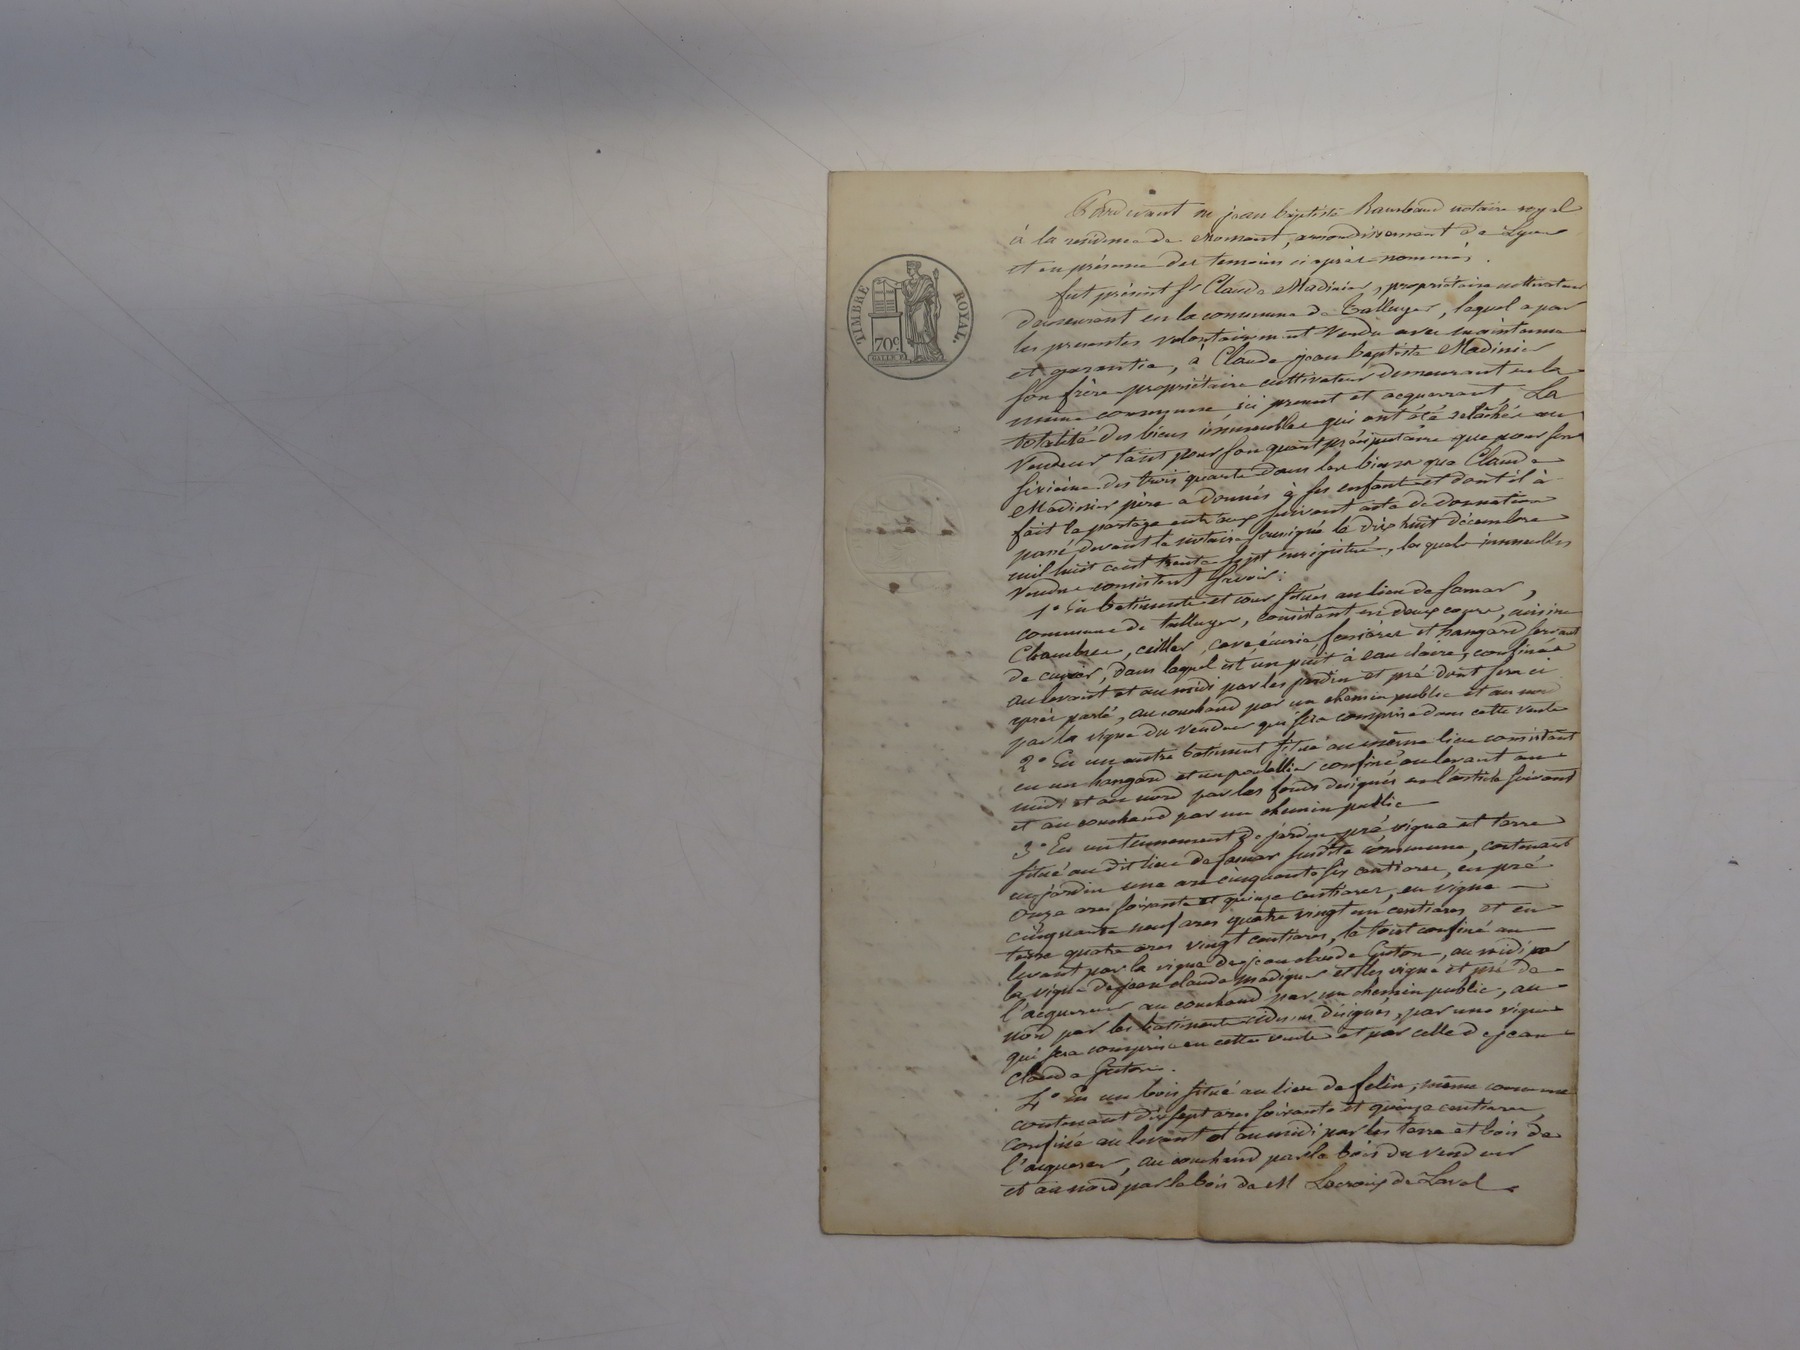 TIMBRE ROYAL.
70c
Pardevant me jean baptiste Rambaud notaire royal
à la residence de Mornant, arrondissement de Lyon
et en présence des temoins ci après nommés.
fut présent sr Claude Madinier, propriétaire cultivateur
demeurant en la commune de Talluyer, lequel a par
les presentes volontairement vendu avec maintenue
et garantie, à Claude jean baptiste Madinier
son frère propriétaire cultivateur demeurant en la
même commune ici present et acquerrant, La
totalité des biens immeubles qui ont été relachés au
vendeur tant pour son quart préciputaire que pour son
sixième des trois quarts dans les biens que Claude
Madinier père a donnés à ses enfants et dont il a
fait le partage entr'eux suivant acte de donnation
passé devant le notaire soussigné le dix huit décembre
mil huit cent trente sept enregistré, lesquels immeubles
vendus consistent savoir:
1° En batiments et cour situés au lieu de famar,
commune de talluyer, consistant en deux cours, cuisine
Chambres, cellier, cave, écurie, fenières et hangard servant
de cuvier, dans lequel est un puit à eau claire, confinés
au levant et au midi par les jardin et pré dont sera ci
après parlé, au couchand par un chemin public et au nord
par la vigne du vendeur qui sera comprise dans cette vente
2° En un autre batiment situé au même lieu consistant
en un hangard et un poulallier confiné au levant au
midi et au nord par les fonds designés en l'article suivant
et au couchand par un chemin public
3° En un tennement de jardin, pré, vigne et terre
situé au dit lieu de famar susdite commune, contenant
en jardin une are cinquante six centiares, en pré
onze ares soixante et quinze centiares, en vigne
cinquante neuf ares quatre vingt un centiares et en
terre quatre ares vingt centiares, le tout confiné au
levant par la vigne de jean claude Guton, au midi par
la vigne de jean claude Madignier et les vigne et pré de
l'acquereur au couchand par un chemin public, au
nord par les batiments ci dessus désignés, par une vigne
qui sera comprise en cette vente et par celle de jean
claude Guton.
4° En un bois situé au lieu de felin, même commune
contenant dix sept ares soixante et quinze centiares,
confiné au levant et au midi par les terre et bois de
l'acquereur, au couchand par le bois du vendeur
et au nord par le bois de M Lacroix de Laval